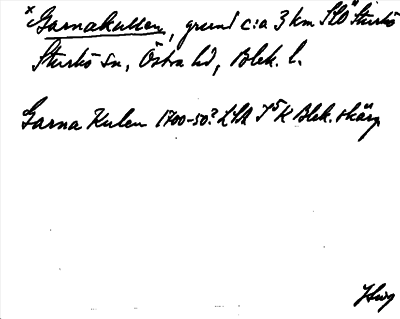 *Garnakullen, grund c:a 3 km SSO Sturkö
Sturkö sn, Östra hd, Blek. l.
Garna Kulen 1700-50? LSA Blek. skärg